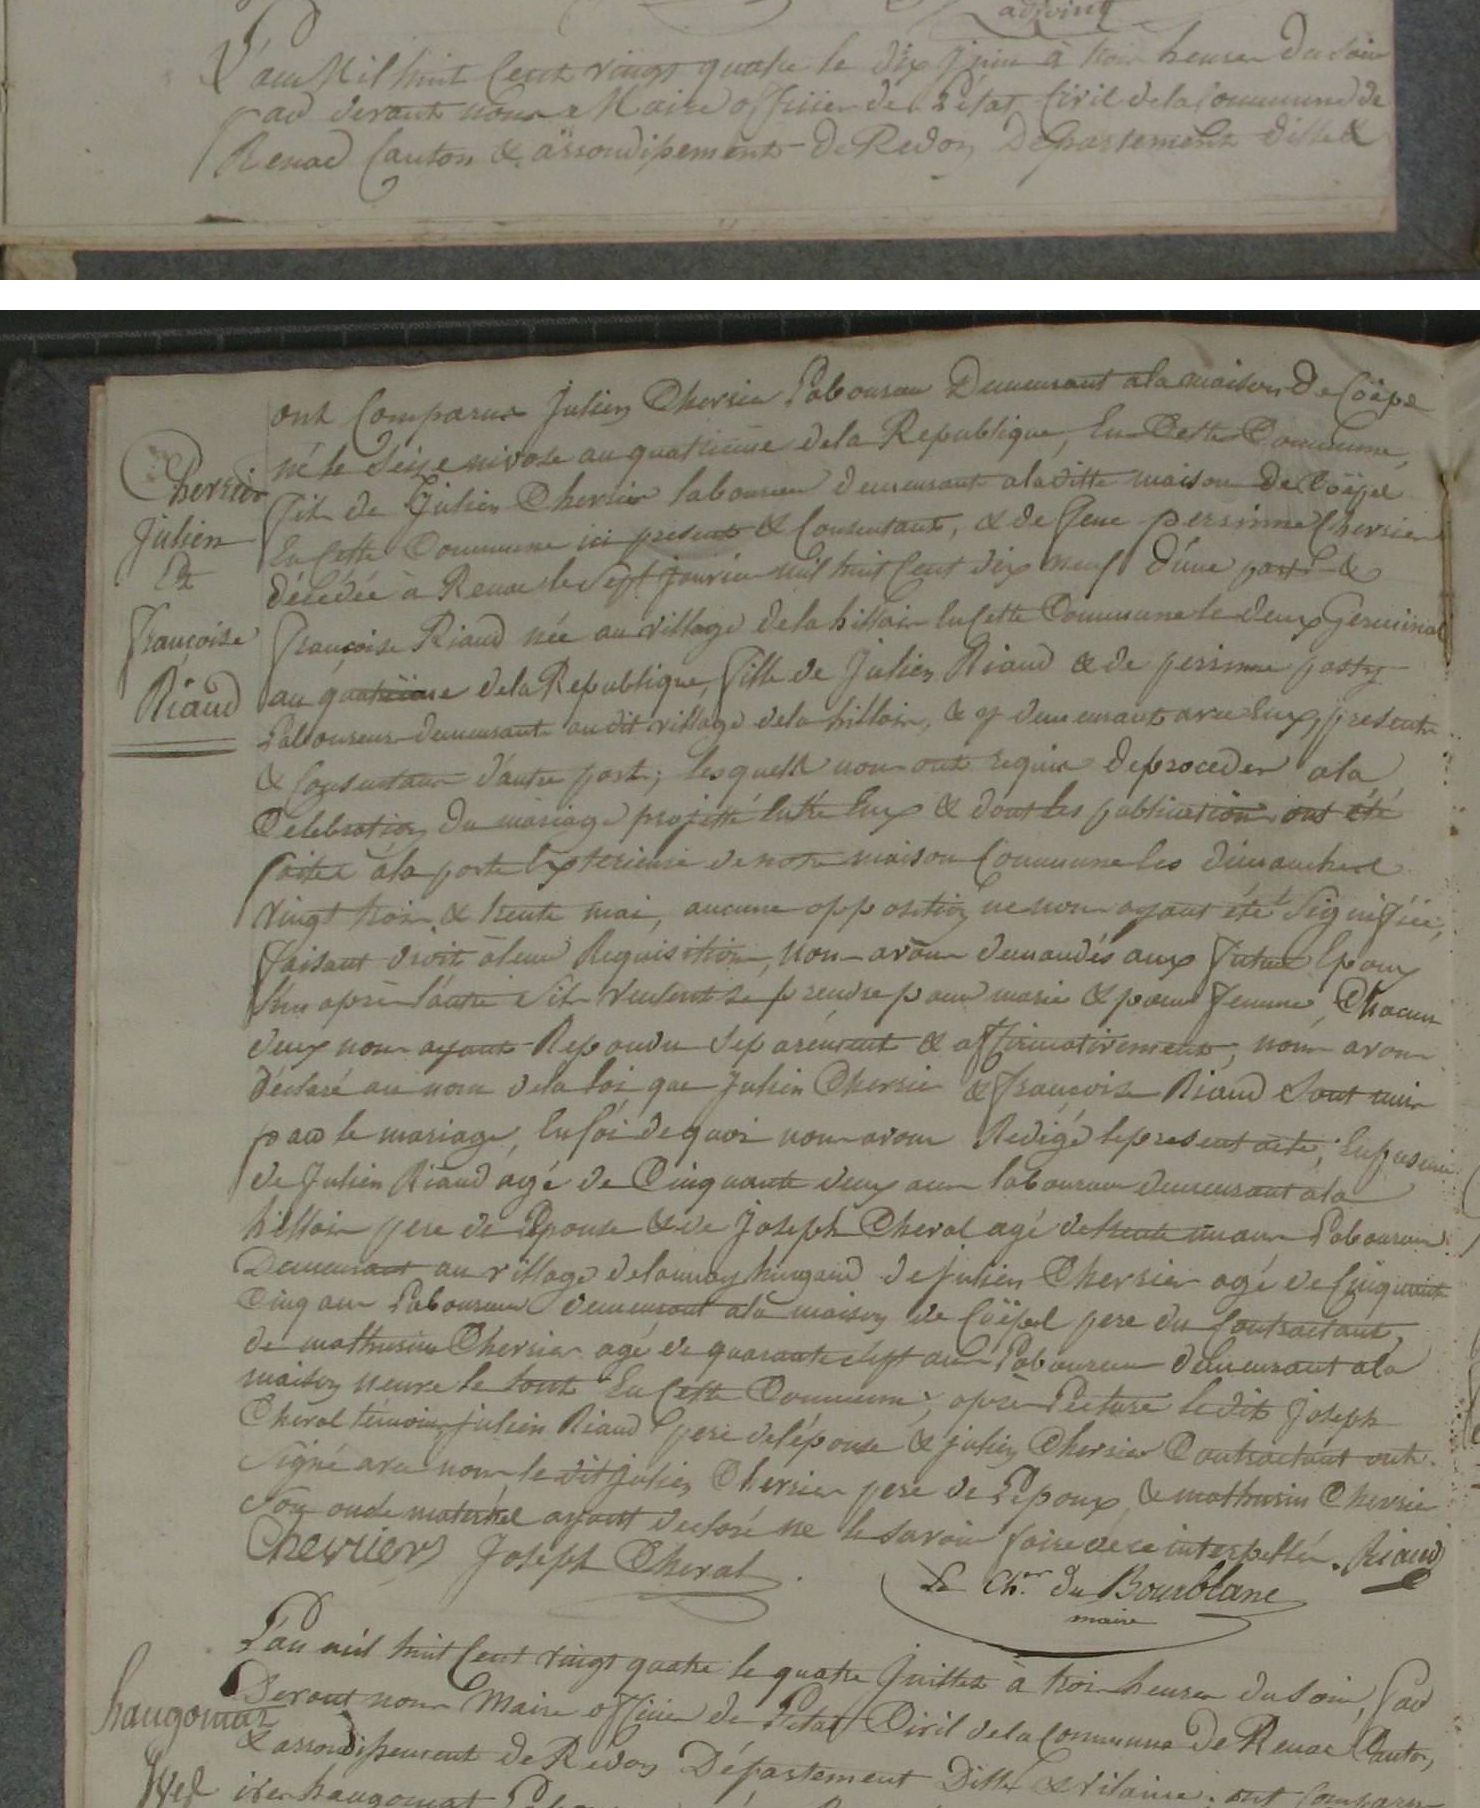 adjoint
L'an Mil huit Cent vingt quatre le dix juin à trois heures du Soir
par devant nous Maire officier de L'état Civil de la Commune de
Renac Canton & arrondissement De Redon Département dille &
ont Comparus Julien Chersier Laboureur Demeurant a la maison De Coëpel
né le Seize nivose an quatrieme de la Republique, En Cette Commune,
fils de Julien Chersier laboureur demeurant a la ditte maison De Coëpel
En Cette Commune ici présent & Consentant, & de feue perrinne Chersier
décédée à Renac le Sept janvier mil huit Cent dix neuf d'une part &
françoise Riaud née au village de la hillair En Cette Commune le deux Germinal
an quatrieme de la Republique, fille de Julien Riaud & de perrinne
Laboureurs demeurant au dit village de la hillair, & y demeurant avec Eux, présents
& Consentans d'autre part; lesquels nous ont requis de proceder a la
Célébration du mariage projetté Entre Eux & dont les publication ont été
faites à la porte Exterieure de notre maison Commune les dimanches
vingt trois & trente mai, aucune opposition ne nous ayant été Signifiée,
faisant droit à leur Requisition, nous avons demandés aux futurs Epoux
l'un après l'autre s'ils veulent se prendre pour mari & pour femme, Chacun
deux nous ayant Repondu Séparément & affirmativement, nous avons
déclaré au nom de la loi que Julien Chersier & françoise Riaud Sont unis
par le mariage, En foi de quoi nous avons Redigé le present acte, En presence
de Julien Riaud agé de Cinquante deux ans laboureur demeurant a la
hillair pere de L'Epouse & de Joseph Cheval agé de trente un ans Laboureur
Demeurant au village de launay hingand de Julien Chersier agé de Cinquante
Cinq ans Laboureur demeurant a la maison de Coëpel pere du Contractant,
de mathurin Chersier agé de quarante Sept ans Laboureur demeurant a la
maison neuve le tout En Cette Commune, après Lecture le dit Joseph
Cheval témoin, julien Riaud pere de l'épouse & julien Chersier Contractant ont
Signé avec nous, le dit Julien Chersier pere de L'epoux & mathurin Chersier
Son oncle maternel ayant declaré ne le savoir faire de ce interpellés. Riaud
Chevrier Joseph Cheval
Le Ch.er du Bourblanc
maire
Chersier
Julien
Et
françoise
Riaud
L'an mil huit Cent vingt quatre le quatre Juillet à trois heures du Soir, Par
Devant nous Maire officier de L'état Civil de la Commune De Renac Canton,
& arrondissement De Redon Département Dille & vilaine, ont Comparu
haugomat
haugomat